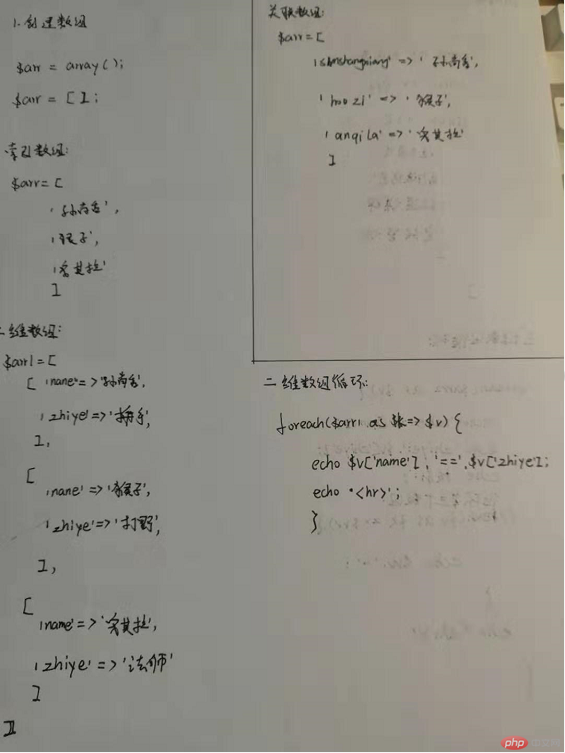 1. 创建数组
$arr = array();
$arr = [];
索引数组:
$arr = [
'孙尚香',
'猴子',
'安其拉'
]
二维数组:
$arr1 = [
[ 'name' => '孙尚香',
'zhiye' => '射手',
],
[
'name' => '猴子',
'zhiye' => '打野',
],
[
'name' => '安其拉',
'zhiye' => '法师'
]
]
关联数组:
$arr = [
'sunshangxiang' => '孙尚香',
'houzi' => '猴子',
'anqila' => '安其拉'
]
二维数组循环:
foreach($arr1 as $k => $v) {
echo $v['name'].'=='.$v['zhiye'];
echo '<hr>';
}
php